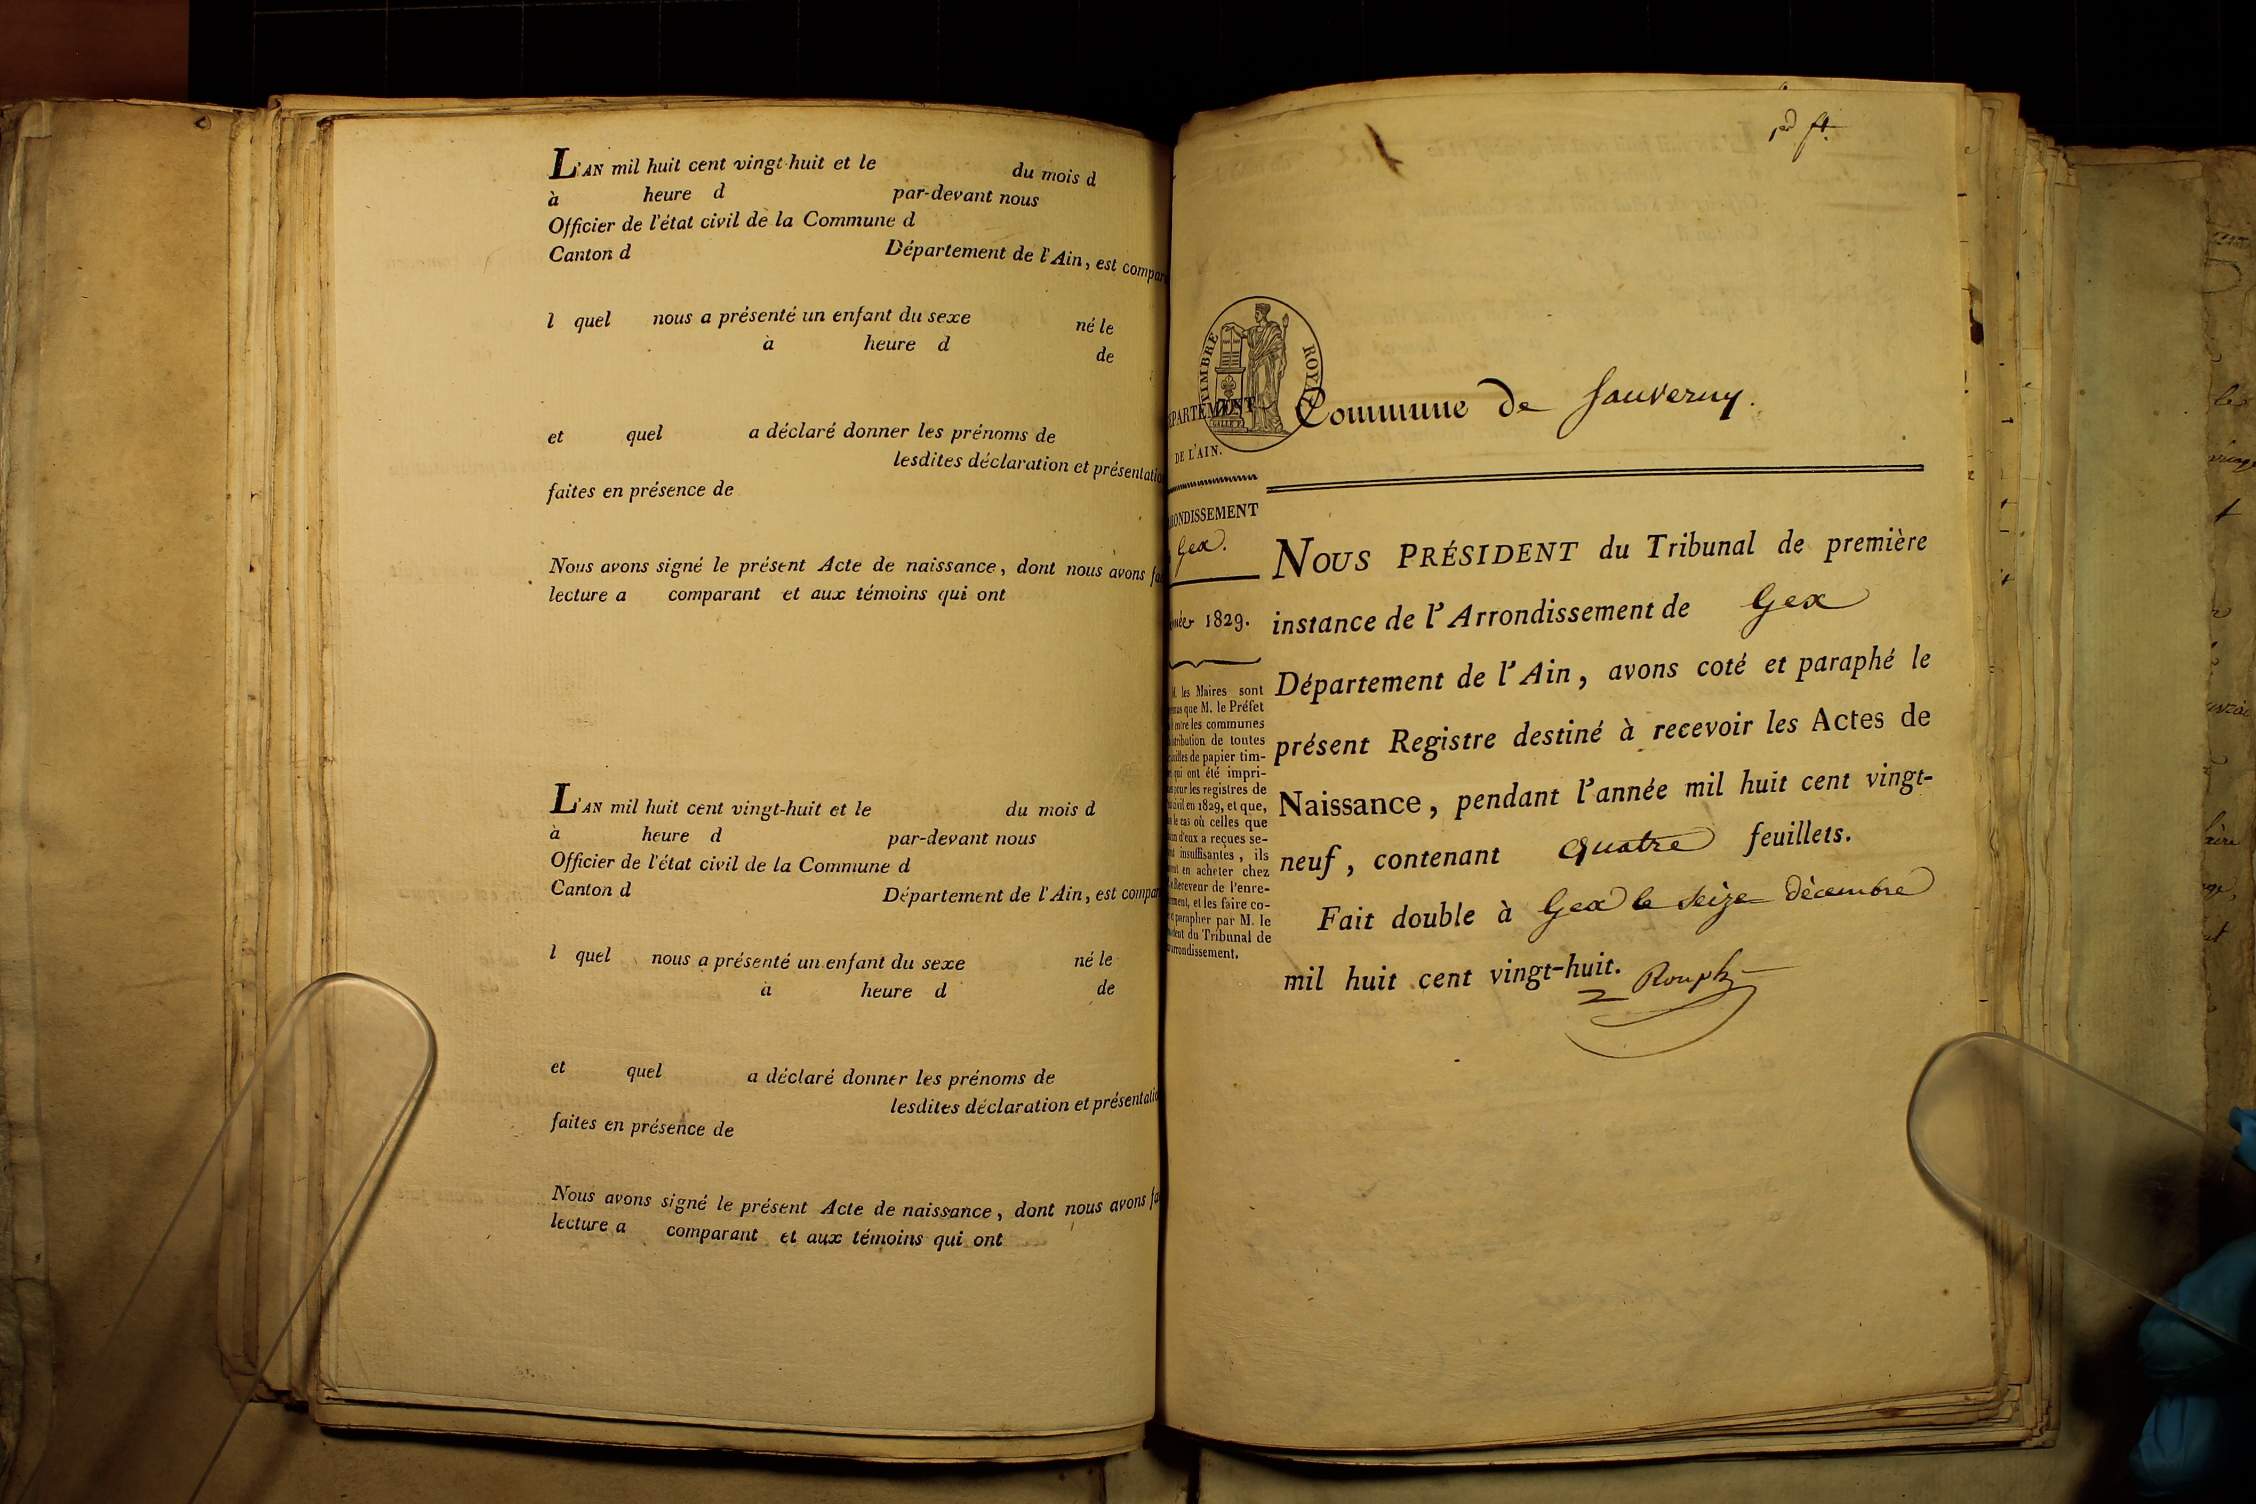 L'AN mil huit cent vingt-huit et le du mois d
à heure d par-devant nous
Officier de l'état civil de la Commune d
Canton d Département de l'Ain, est compar
l quel nous a présenté un enfant du sexe né le
à heure d de
et quel a déclaré donner les prénoms de
lesdites déclaration et présentatio
faites en présence de
Nous avons signé le présent Acte de naissance, dont nous avons fa
lecture a comparant et aux témoins qui ont
L'AN mil huit cent vingt-huit et le du mois d
à heure d par-devant nous
Officier de l'état civil de la Commune d
Canton d Département de l'Ain, est compar
l quel nous a présenté un enfant du sexe né le
à heure d de
et quel a déclaré donner les prénoms de
lesdites déclaration et présentatio
faites en présence de
Nous avons signé le présent Acte de naissance, dont nous avons fa
lecture a comparant et aux témoins qui ont
TIMBRE ROYAL
ÉPARTEMENT
DE L'AIN.
Commune de Sauverny.
RONDISSEMENT
Gex.
1829.
M. les Maires sont
que M. le Préfet
entre les communes
tribution de toutes
uilles de papier tim-
qui ont été impri-
pour les registres de
civil en 1829, et que,
le cas où celles que
un d'eux a reçues se-
insuffisantes, ils
en acheter chez
Receveur de l'enre-
ment, et les faire co-
et parapher par M. le
dent du Tribunal de
arrondissement.
NOUS PRÉSIDENT du Tribunal de première
instance de l'Arrondissement de Gex
Département de l'Ain, avons coté et paraphé le
présent Registre destiné à recevoir les Actes de
Naissance, pendant l'année mil huit cent vingt-
neuf, contenant quatre feuillets.
Fait double à Gex le seize décembre
mil huit cent vingt-huit.